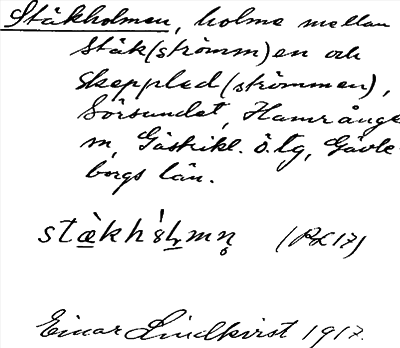 Stäkholmen, holme mellan
Stäk(strömm)en och
Skeppled(strömmen),
Sörsundet, Hamrånge
sn, Gästrikl. ö. tg, Gävle-
borgs län.
(RL 17)
Einar Lindkvist 1917.